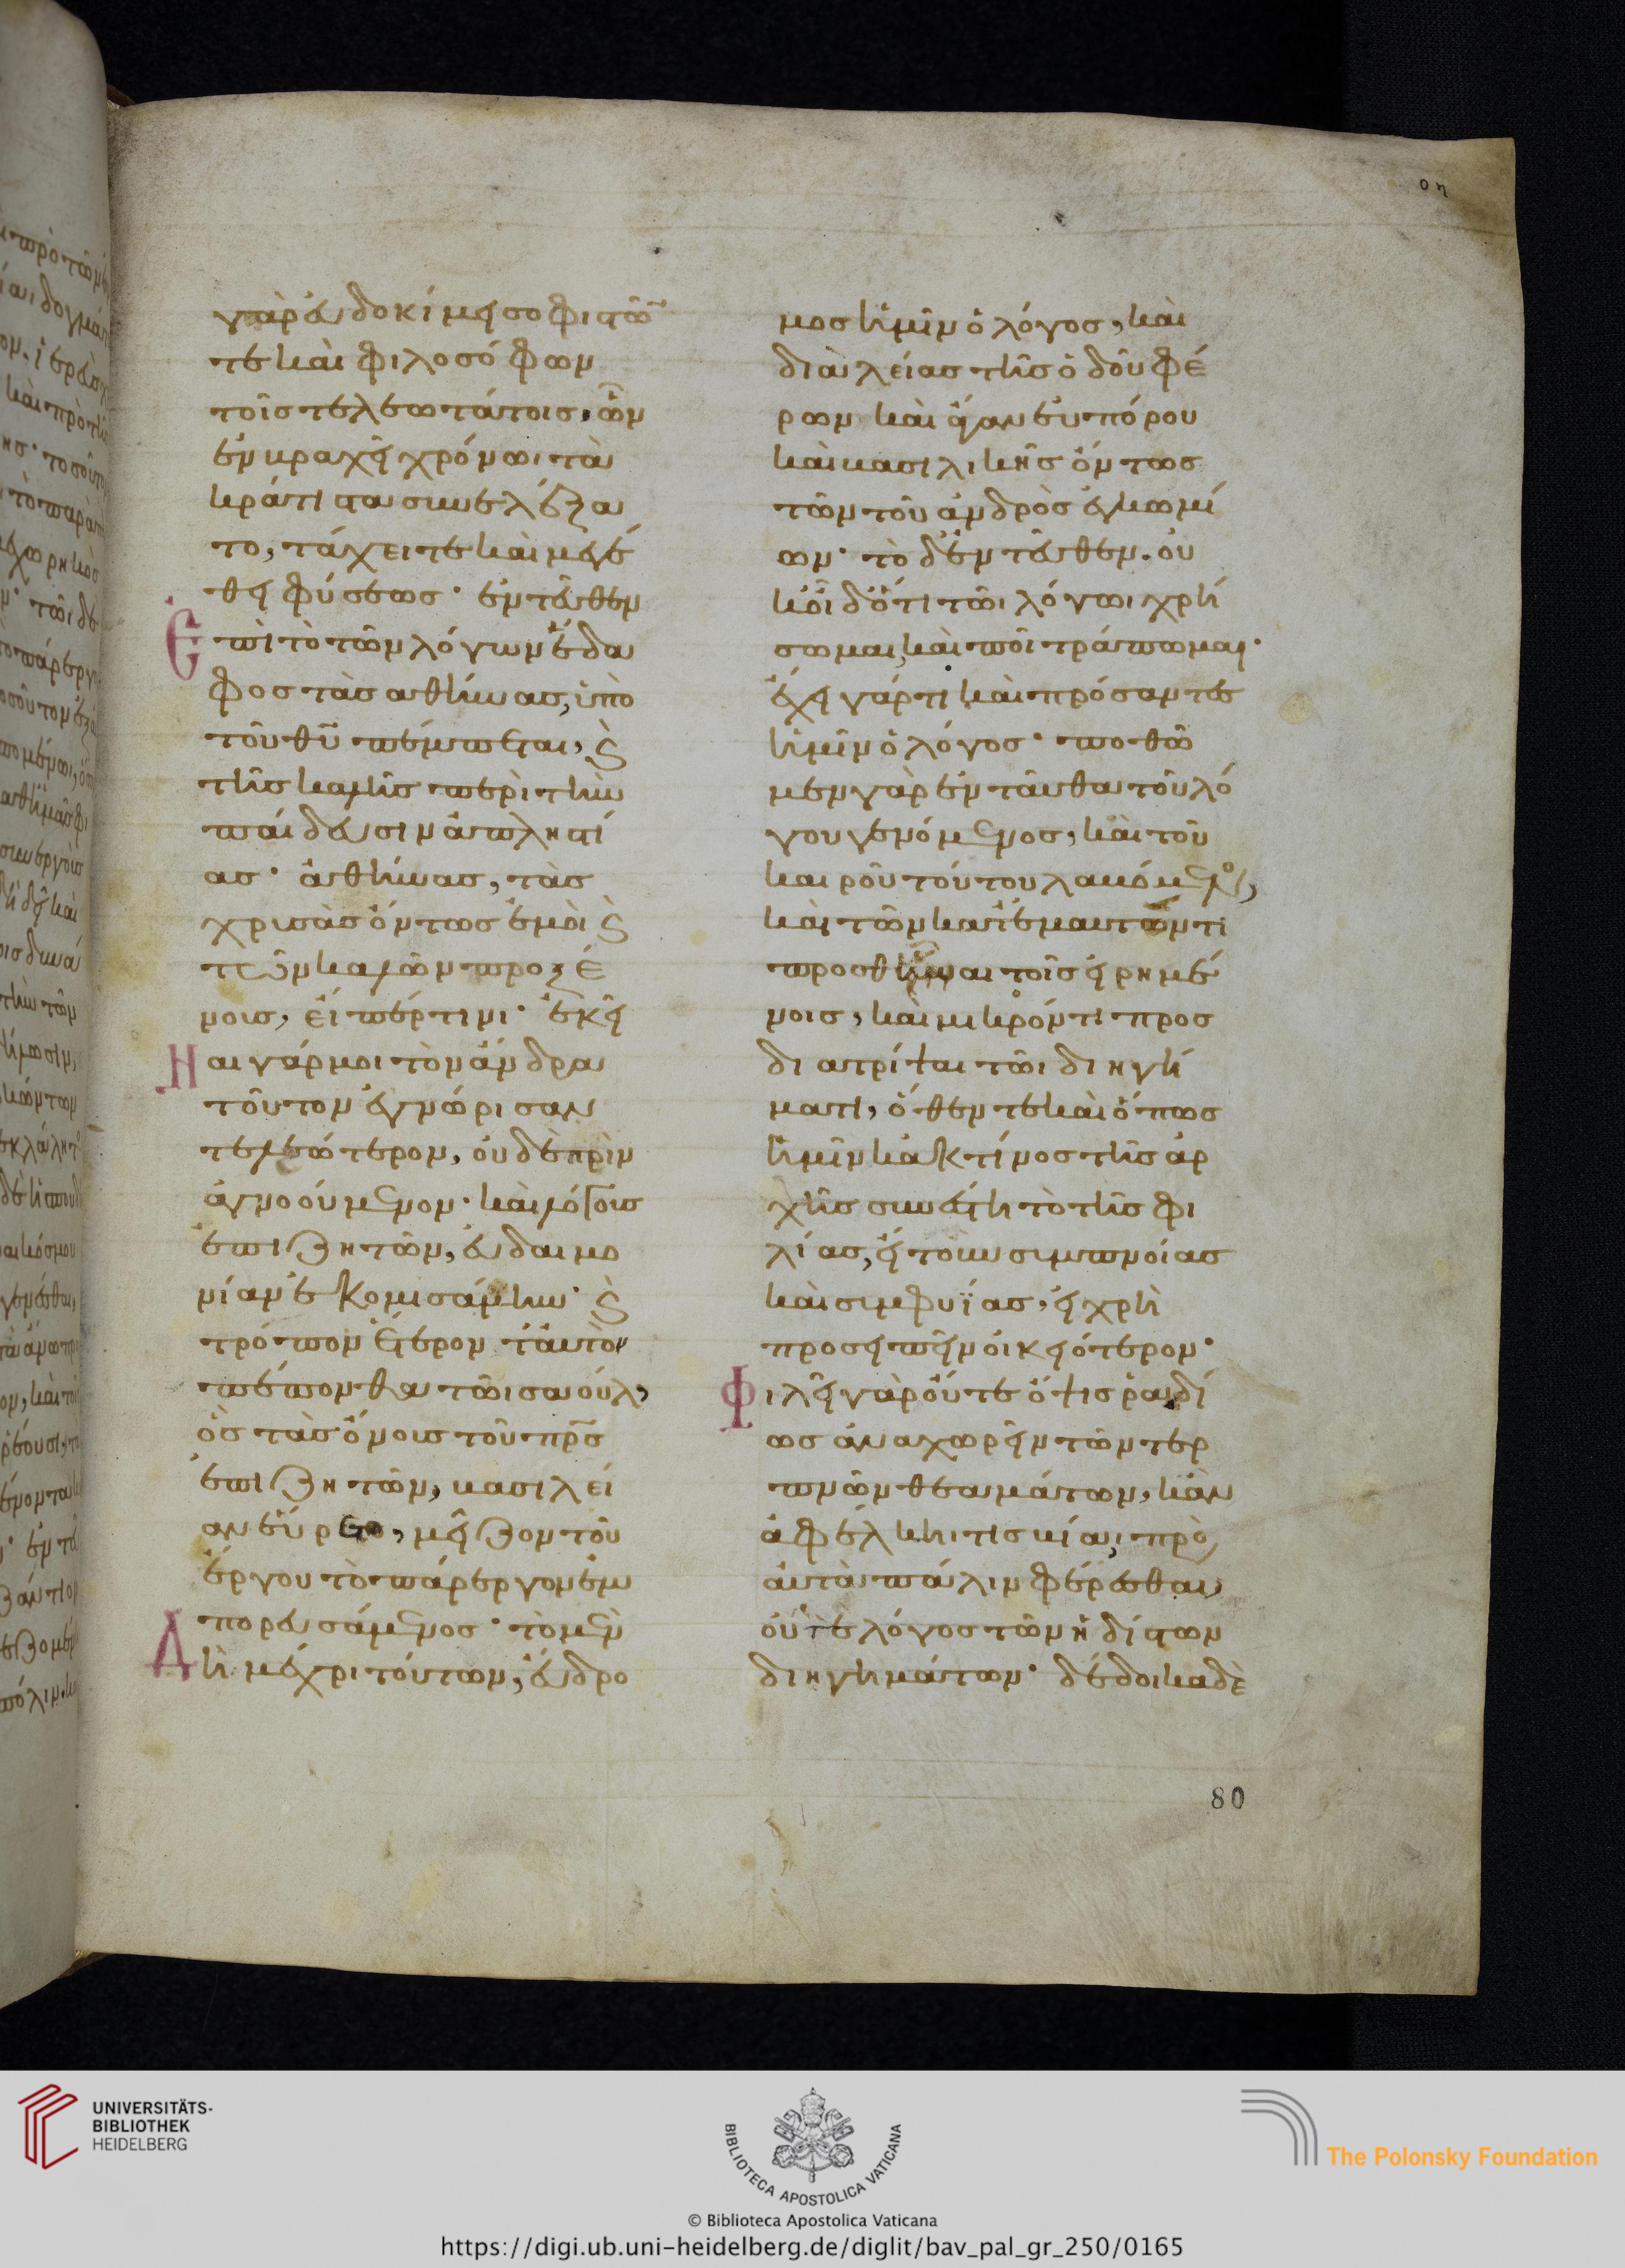 γὰρ εὐδοκίμει σοφιστῶν
τε καὶ φιλοσόφων
τοῖς τελεωτάτοις· ὧν
ἐν βραχεῖ χρόνωι τὰ
κράτιστα συνελέξα
το, τάχει τε καὶ μεγέ
θει φύσεως· ἐντεῦθεν
ἐπὶ τὸ τῶν λόγων ἔδα
φος τὰς ἀθήνας, ὑπὸ
τοῦ θῦ πέμπεται, ϗ
τῆς καλῆς περὶ τὴν
παίδευσιν ἀπληστί
ας· ἀθήνας, τὰς
χρυσᾶς ὄντως ἐμοὶ ϗ
τῶν καλῶν προξέ
νους, εἴπερ τινι· ἐκεῖ
ναι γάρ μοι τὸν ἄνδρα
τοῦτον ἐγνώρισαν
τελεώτερον, οὐδὲ πρὶν
ἀγνοούμενον· καὶ λόγους
ἐπιζητῶν, εὐδαιμο
νίαν ἐκομισάμην· ϗ
τρόπον ἕτερον ταὐτὸν
πέπονθα τῶι σαούλ,
ὃς τὰς ὄνους τοῦ πρς
ἐπιζητῶν, βασιλεί
αν εὕρετο, μεῖζον τοῦ
ἔργου τὸ πάρεργον ἐμ
πορευσάμενος· τὸ μὲν
Δὴ μέχρι τούτων, εὔδρο
μος ἡμῖν ὁ λόγος, καὶ
διὰ λείας τῆς ὁδοῦ φέ
ρων καὶ λίαν εὐπόρου
καὶ βασιλικῆς ὄντως
τῶν τοῦ ἀνδρὸς ἐγκωμί
ων· τὸ δ' ἐντεῦθεν. οὐ
κ οἶδ' ὅτι τῶι λόγωι χρή
σωμαι, καὶ ποῖ τράπωμαι·
ἔχει γάρ τι καὶ πρόσαντες
ἡμῖν ὁ λόγος· ποθῶ
μὲν γὰρ ἐνταῦθα τοῦ λό
γου γενόμενος, καὶ τοῦ
καιροῦ τούτου λαβόμενος,
καὶ τῶν κατ' ἐμαυτὸν τι
προσθεῖναι τοῖς εἰρημέ
νοις, καὶ μικρόν τι προσ
διατρίψαι τῶι διηγή
ματι, ὅθεν τε καὶ ὅπως
ἡμῖν κἀκ τίνος τῆς ἀρ
χῆς συνέστη τὸ τῆς φι
λίας, εἴτουν συμπνοίας
καὶ συμφυΐας, εἰ χρὴ
προσειπεῖν οἰκειότερον·
Φιλεῖ γὰρ οὔτε ὄψις ῥαδί
ως ἀναχωρεῖν τῶν τερ
πνῶν θεαμάτων, κἂν
ἀφέλκηι τις βίαι, πρὸς
αὐτὰ πάλιν φέρεσθαι,
οὔτε λόγος τῶν ἡδίστων
διηγημάτων· δέδοικα δὲ
οη
80
UNIVERSITÄTS-
BIBLIOTHEK
HEIDELBERG
BIBLIOTECA APOSTOLICA VATICANA
The Polonsky Foundation
© Biblioteca Apostolica Vaticana
https://digi.ub.uni-heidelberg.de/diglit/bav_pal_gr_250/0165